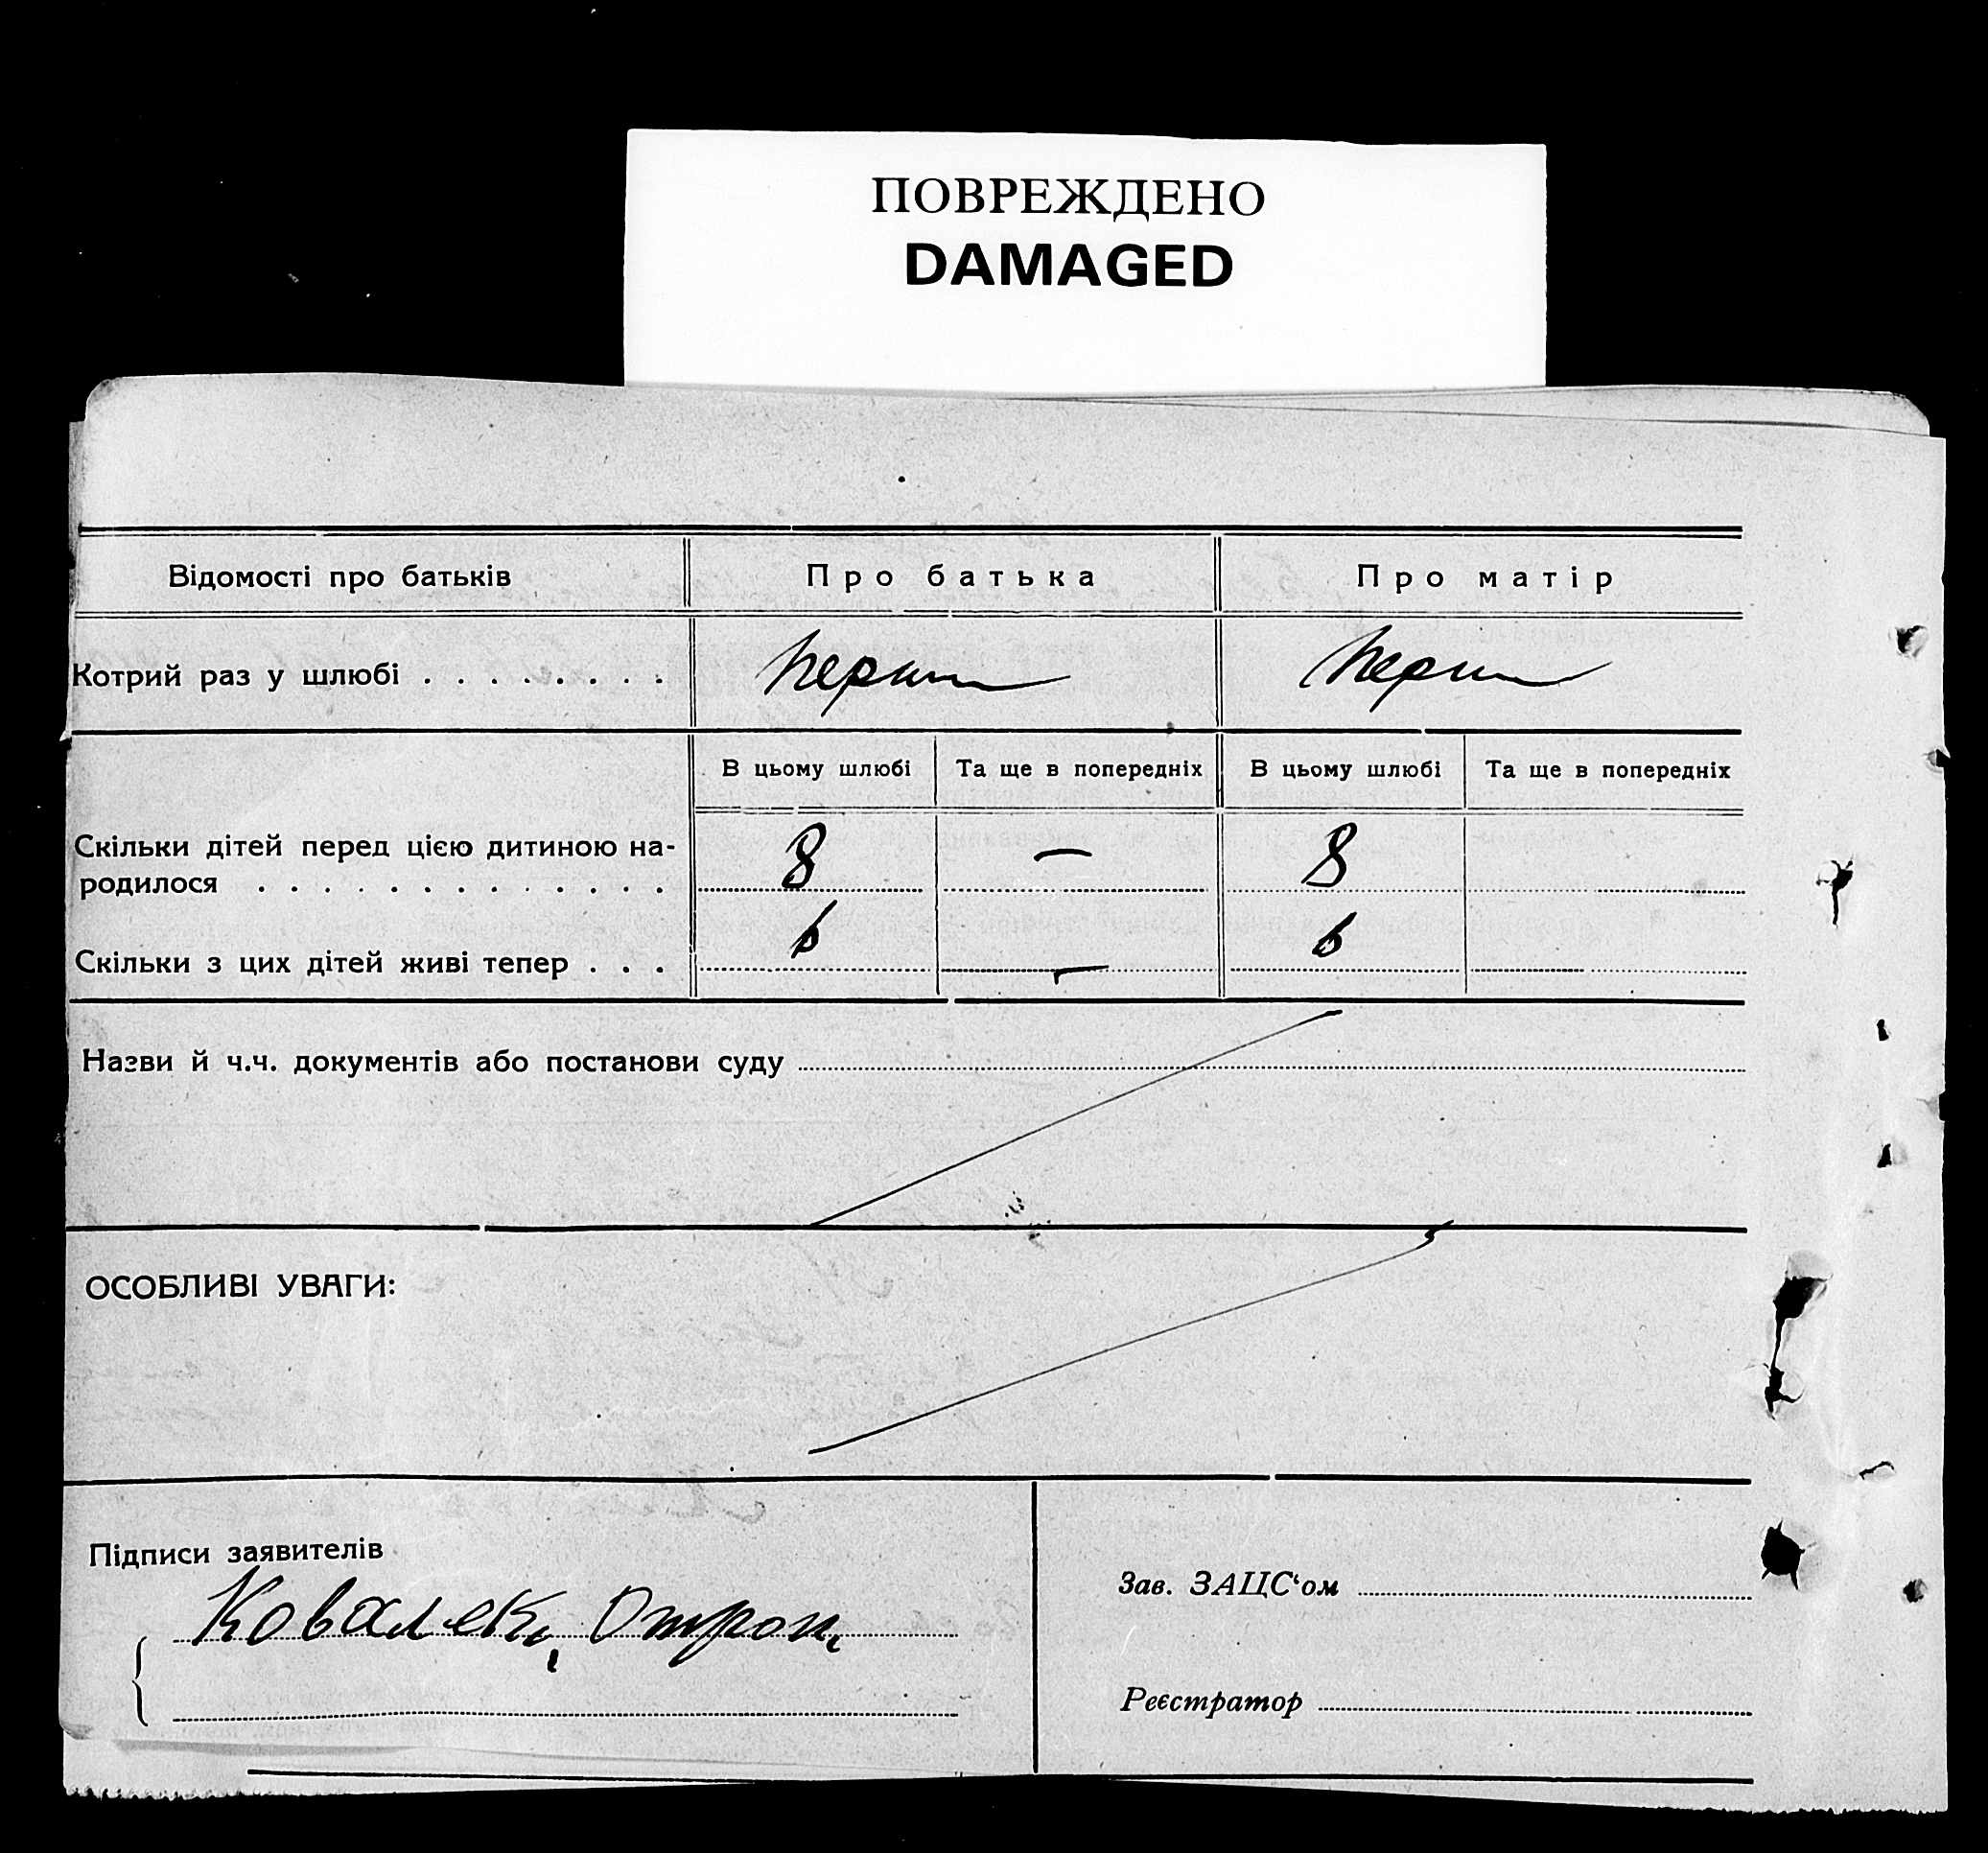 ПОВРЕЖДЕНО
DAMAGED
Відомості про батьків
Про батька
Про матір
Котрий раз у шлюбі
В цьому шлюбі
Та ще в попередніх
В цьому шлюбі
Та ще в попередніх
Скільки дітей перед цією дитиною на-
родилося
8
—
8
Скільки з цих дітей живі тепер . . .
6
—
6
Назви й ч.ч. документів або постанови суду
ОСОБЛИВІ УВАГИ:
Підписи заявителів
Зав. ЗАЦС‘ом
Реєстратор